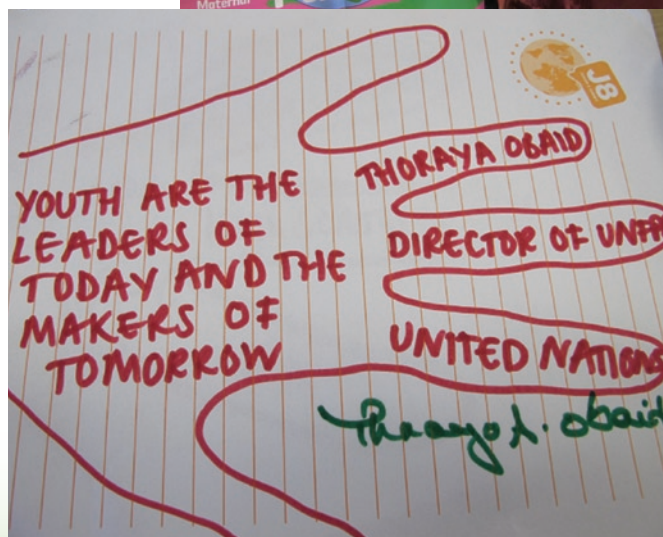 Maternal
J8
YOUTH ARE THE
LEADERS OF
TODAY AND THE
MAKERS OF
TOMORROW
THORAYA OBAID
DIRECTOR OF UNFP
UNITED NATIONS
Thoraya A. Obaid